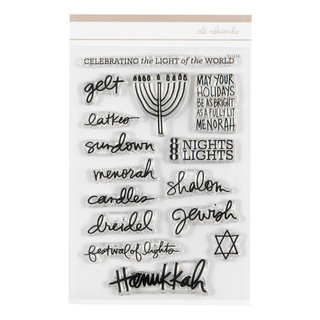 CELEBRATING the LIGHT of the WORLD
gelt
MAY YOUR
HOLIDAYS
BE AS BRIGHT
AS A FULLY LIT
MENORAH
latkes
sundown
8 NIGHTS
8 LIGHTS
menorah
shalom
candles
Jewish
dreidel
festival of lights
Hanukkah